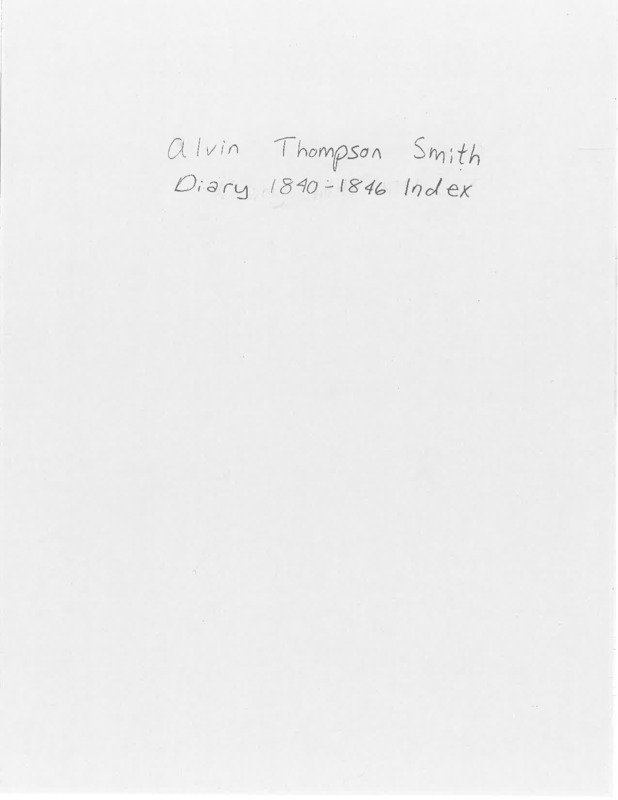 Alvin Thompson Smith
Diary 1840-1846 Index